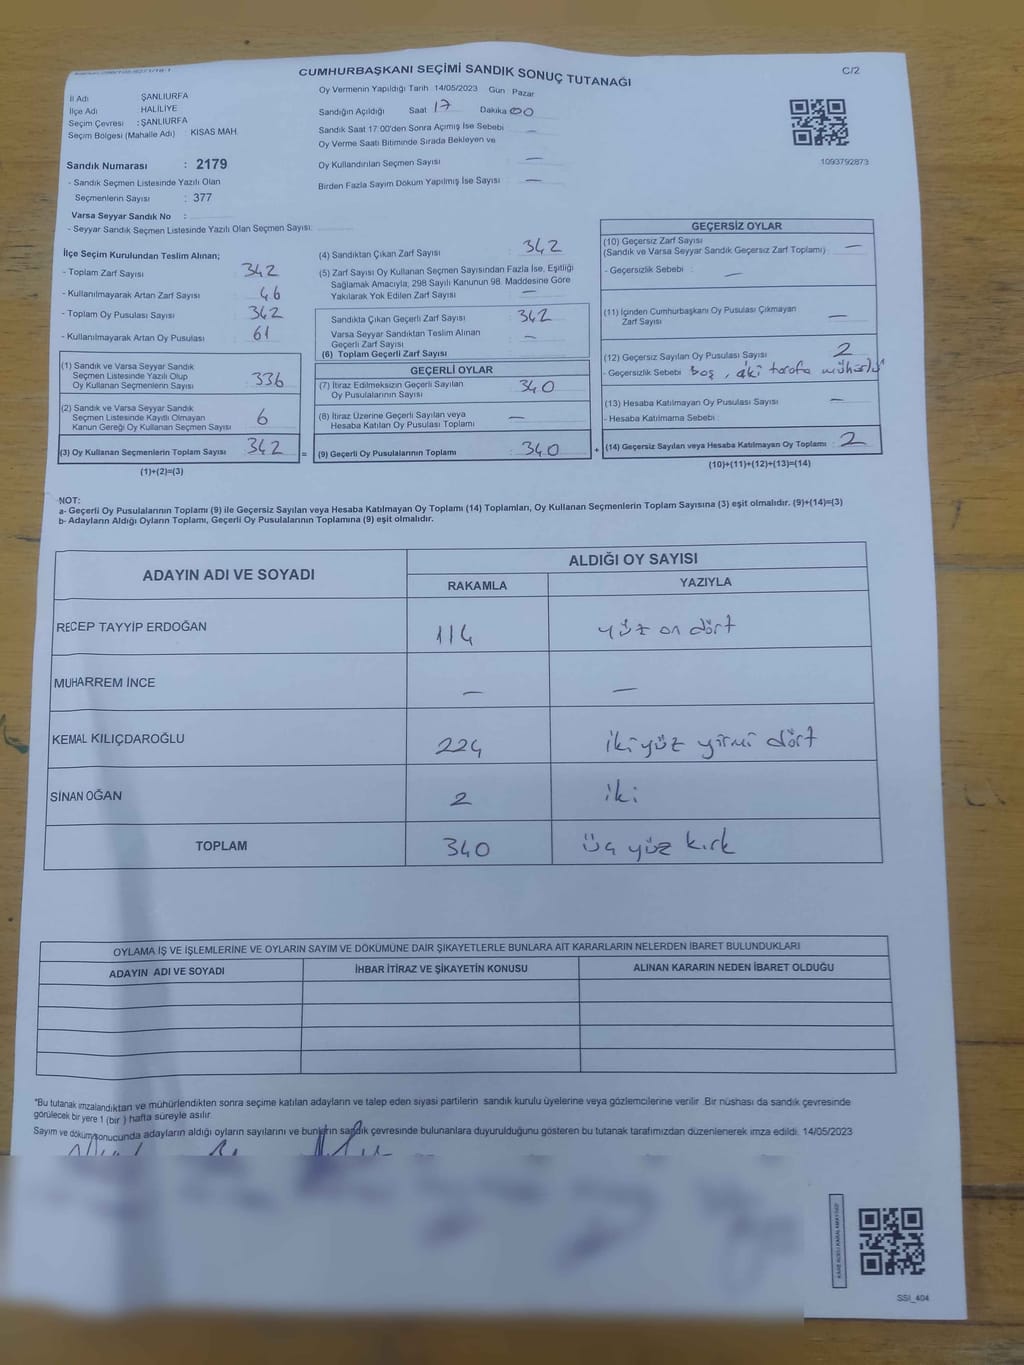 CUMHURBAŞKANI SEÇİMİ SANDIK SONUÇ TUTANAĞI
C/2
İl Adı ŞANLIURFA
İlçe Adı HALİLİYE
Seçim Çevresi : ŞANLIURFA
Seçim Bölgesi (Mahalle Adı) : KISAS MAH.
Sandık Numarası : 2179
- Sandık Seçmen Listesinde Yazılı Olan
Seçmenlerin Sayısı : 377
Varsa Seyyar Sandık No :
- Seyyar Sandık Seçmen Listesinde Yazılı Olan Seçmen Sayısı:
Oy Vermenin Yapıldığı Tarih 14/05/2023 Gün Pazar
Sandığın Açıldığı Saat 17 Dakika 00
Sandık Saat 17:00'den Sonra Açımış İse Sebebi —
Oy Verme Saati Bitiminde Sırada Bekleyen ve
Oy Kullandırılan Seçmen Sayısı —
Birden Fazla Sayım Döküm Yapılmış İse Sayısı —
1093792873
İlçe Seçim Kurulundan Teslim Alınan;
- Toplam Zarf Sayısı 342
- Kullanılmayarak Artan Zarf Sayısı 46
- Toplam Oy Pusulası Sayısı 342
- Kullanılmayarak Artan Oy Pusulası 61
(1) Sandık ve Varsa Seyyar Sandık
Seçmen Listesinde Yazılı Olup
Oy Kullanan Seçmenlerin Sayısı 336
(2) Sandık ve Varsa Seyyar Sandık
Seçmen Listesinde Kayıtlı Olmayan
Kanun Gereği Oy Kullanan Seçmen Sayısı 6
(3) Oy Kullanan Seçmenlerin Toplam Sayısı 342 =
(1)+(2)=(3)
(4) Sandıktan Çıkan Zarf Sayısı : 342
(5) Zarf Sayısı Oy Kullanan Seçmen Sayısından Fazla İse, Eşitliği
Sağlamak Amacıyla; 298 Sayılı Kanunun 98. Maddesine Göre
Yakılarak Yok Edilen Zarf Sayısı —
Sandıkta Çıkan Geçerli Zarf Sayısı : 342
Varsa Seyyar Sandıktan Teslim Alınan
Geçerli Zarf Sayısı : —
(6) Toplam Geçerli Zarf Sayısı
GEÇERLİ OYLAR
(7) İtiraz Edilmeksizin Geçerli Sayılan
Oy Pusulalarının Sayısı : 340
(8) İtiraz Üzerine Geçerli Sayılan veya
Hesaba Katılan Oy Pusulası Toplamı : —
(9) Geçerli Oy Pusulalarının Toplamı : 340 +
GEÇERSİZ OYLAR
(10) Geçersiz Zarf Sayısı
(Sandık ve Varsa Seyyar Sandık Geçersiz Zarf Toplamı) : —
- Geçersizlik Sebebi : —
(11) İçinden Cumhurbaşkanı Oy Pusulası Çıkmayan
Zarf Sayısı : —
(12) Geçersiz Sayılan Oy Pusulası Sayısı : 2
- Geçersizlik Sebebi : boş, iki tarafa mühürlü
(13) Hesaba Katılmayan Oy Pusulası Sayısı : —
- Hesaba Katılmama Sebebi :
(14) Geçersiz Sayılan veya Hesaba Katılmayan Oy Toplamı : 2
(10)+(11)+(12)+(13)=(14)
NOT:
a- Geçerli Oy Pusulalarının Toplamı (9) ile Geçersiz Sayılan veya Hesaba Katılmayan Oy Toplamı (14) Toplamları, Oy Kullanan Seçmenlerin Toplam Sayısına (3) eşit olmalıdır. (9)+(14)=(3)
b- Adayların Aldığı Oyların Toplamı, Geçerli Oy Pusulalarının Toplamına (9) eşit olmalıdır.
ADAYIN ADI VE SOYADI
ALDIĞI OY SAYISI
RAKAMLA YAZIYLA
RECEP TAYYİP ERDOĞAN 114 yüz on dört
MUHARREM İNCE — —
KEMAL KILIÇDAROĞLU 224 iki yüz yirmi dört
SİNAN OĞAN 2 iki
TOPLAM 340 üç yüz kırk
OYLAMA İŞ VE İŞLEMLERİNE VE OYLARIN SAYIM VE DÖKÜMÜNE DAİR ŞİKAYETLERLE BUNLARA AİT KARARLARIN NELERDEN İBARET BULUNDUKLARI
ADAYIN ADI VE SOYADI İHBAR İTİRAZ VE ŞİKAYETİN KONUSU ALINAN KARARIN NEDEN İBARET OLDUĞU
*Bu tutanak imzalandıktan ve mühürlendikten sonra seçime katılan adayların ve talep eden siyasi partilerin sandık kurulu üyelerine veya gözlemcilerine verilir. Bir nüshası da sandık çevresinde
görülecek bir yere 1 (bir) hafta süreyle asılır.
Sayım ve döküm sonucunda adayların aldığı oyların sayılarını ve bunların sandık çevresinde bulunanlara duyurulduğunu gösteren bu tutanak tarafımızdan düzenlenerek imza edildi. 14/05/2023
SSI_404